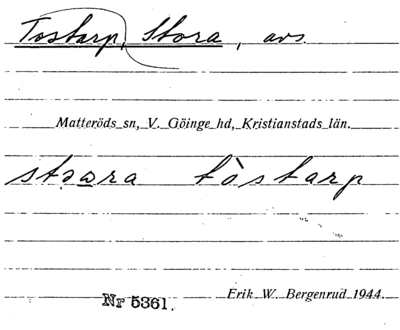 Tostarp, Stora, avs.
Matteröds sn, V. Göinge hd, Kristianstads län.
stɔara tòstarp
Nr 5361.
Erik W. Bergenrud 1944.